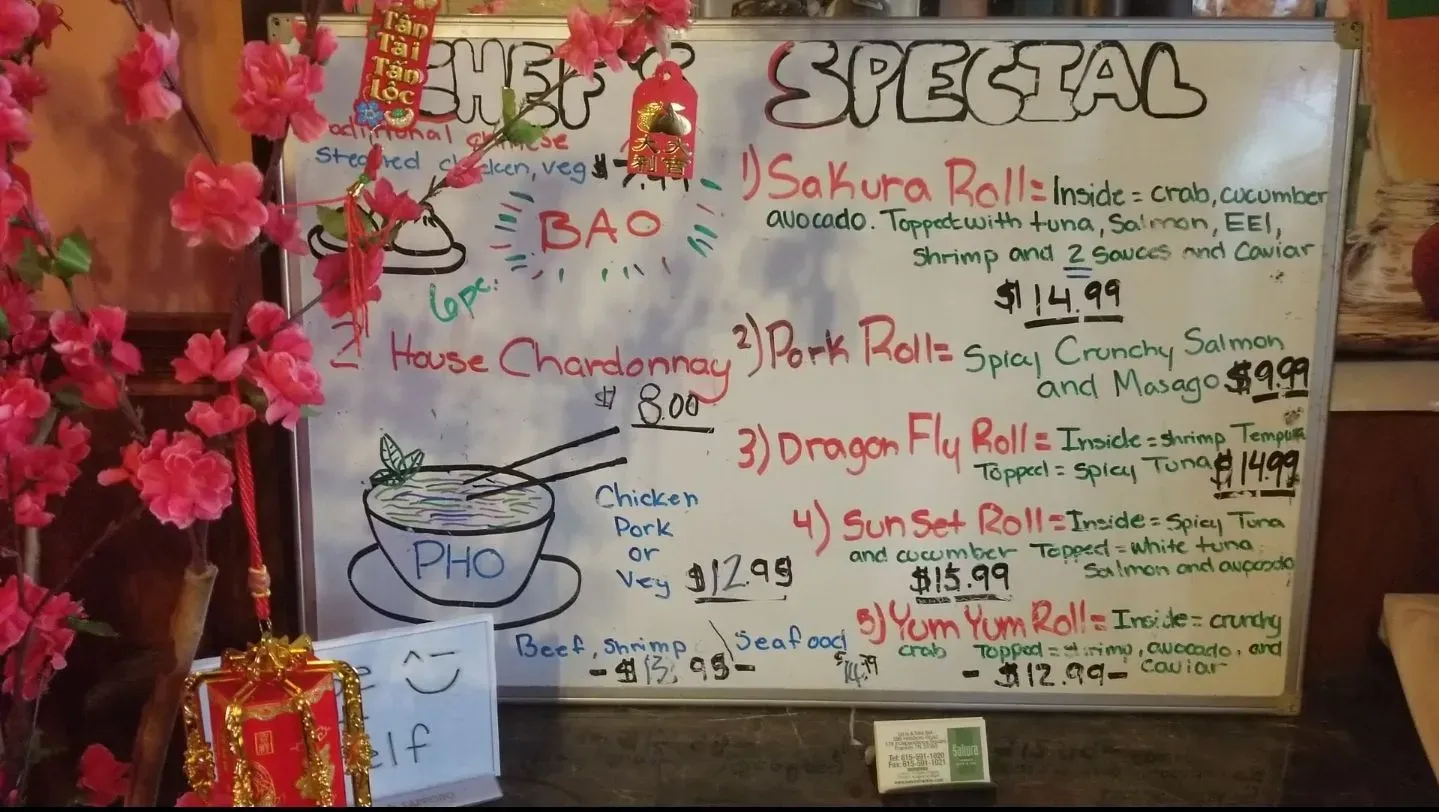 Tấn
Tài
Tấn
Lộc
CHEF'S SPECIAL
大 大
利 吉
Steamed chicken, veg
BAO
6pc.
2 House Chardonnay
$ 8.00
PHO
Chicken
Pork
or
Vey $12.95
Beef, shrimp \ Seafood
- $13.95 -
$14.99
1) Sakura Roll = Inside = crab, cucumber
avocado. Topped with tuna, Salmon, EEl,
Shrimp and 2 Sauces and Caviar
$14.99
2) Pork Roll = Spicy Crunchy Salmon
and Masago $9.99
3) Dragon Fly Roll = Inside = shrimp Tempura
Topped = Spicy Tuna $14.99
4) Sun Set Roll = Inside = Spicy Tuna
and cucumber Topped = white tuna
Salmon and avocado
$15.99
5) Yum Yum Roll = Inside = crunchy
crab Topped = shrimp, avocado, and
caviar
- $12.99 -
elf
Sakura
Tel: 615-591-1020
Fax: 615-591-1021